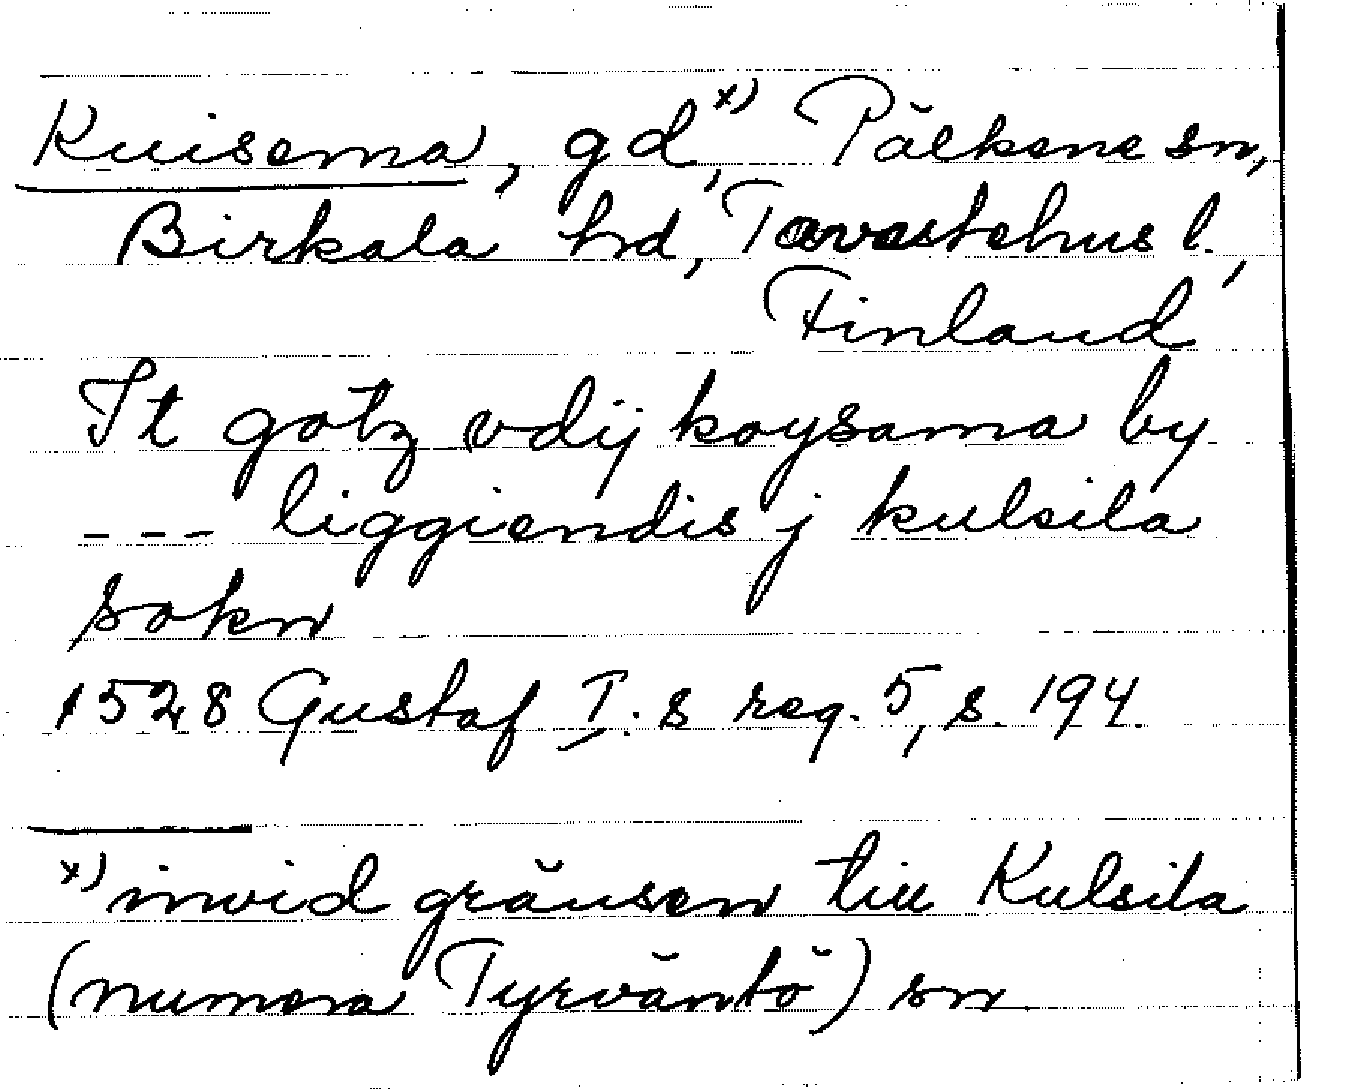 Kuisema, gd,x) Pälkene sn,
Birkala hd, Tavastehus l.,
Finland
It gotz vdij koysama by
--- liggiendis j kulsila
sokn
1528 Gustaf I.s reg. 5, s. 194.
x) invid gränsen till Kulsila
(numera Tyrväntö) sn